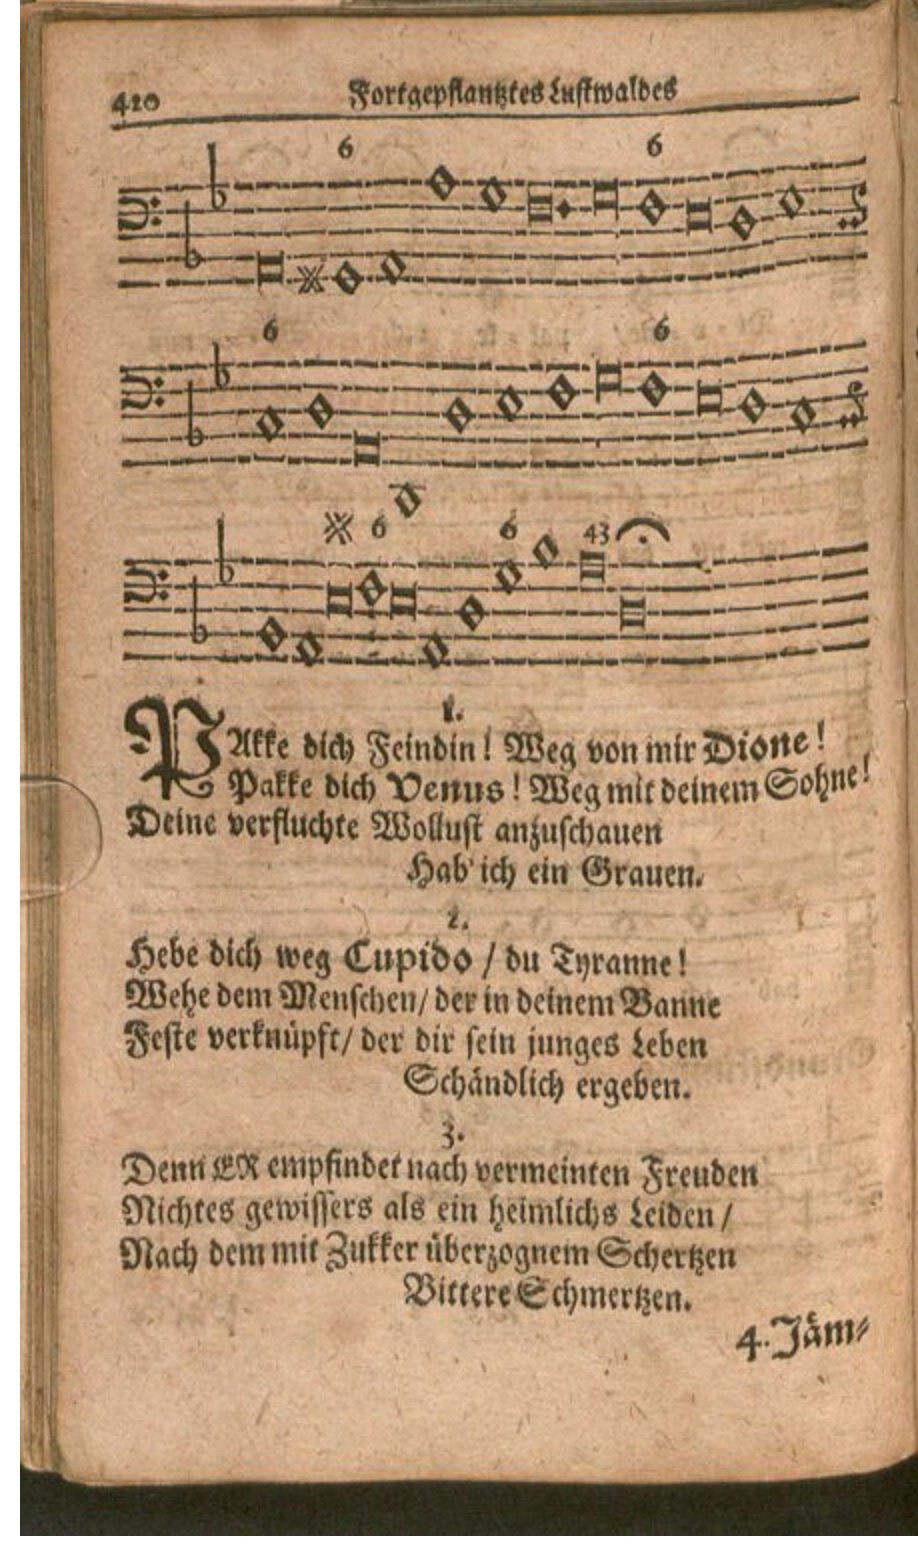 420 Fortgepflantztes Lustwaldes
6 6
6 6
6 6 43
1.
PAkke dich Feindin! Weg von mir Dione!
Pakke dich Venus! Weg mit deinem Sohne!
Deine verfluchte Wollust anzuschauen
Hab' ich ein Grauen.
2.
Hebe dich weg Cupido / du Tyranne!
Wehe dem Menschen/ der in deinem Banne
Feste verknüpft/ der dir sein junges Leben
Schändlich ergeben.
3.
Denn ER empfindet nach vermeinten Freuden
Nichtes gewissers als ein heimlichs Leiden /
Nach dem mit Zukker überzognem Schertzen
Bittere Schmertzen.
4. Jäm-